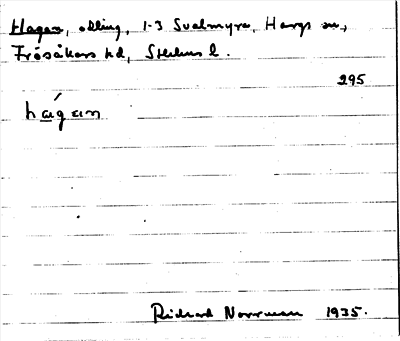 Hagen, odling, 1-3 Svalmyra, Hargs sn,
Frösåkers hd, Sthlms l.
295
hágan
Richard Norrman 1935.